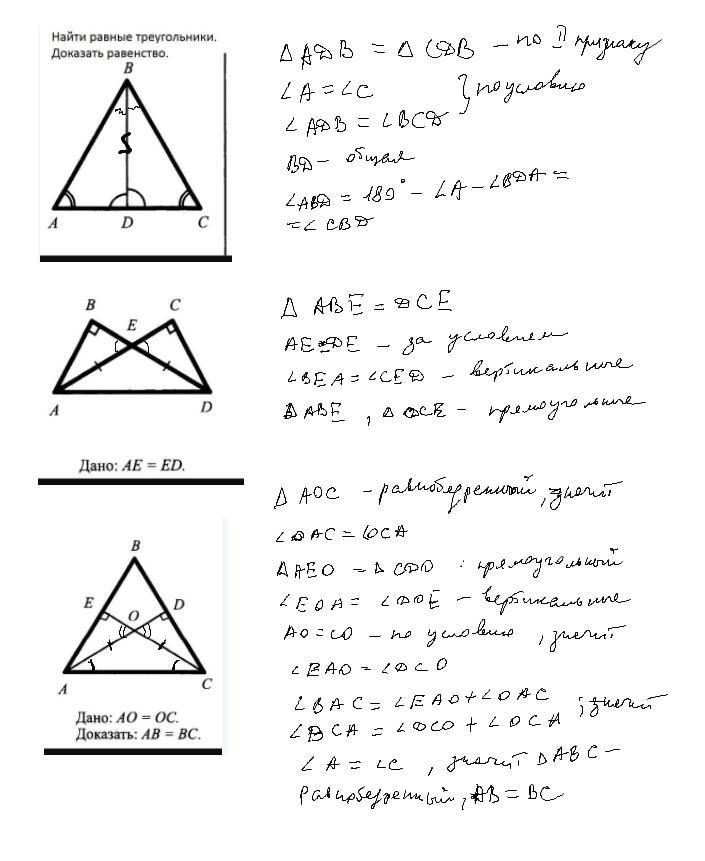 Найти равные треугольники.
Доказать равенство.
B
A D C
Δ ADB = Δ CDB – по II признаку
∠A = ∠C } по условию
∠ADB = ∠BCD
BD – общая
∠ABD = 180° – ∠A – ∠BDA =
= ∠CBD
B C
E
A D
Дано: AE = ED.
Δ ABE = DCE
AE = DE – за условием
∠BEA = ∠CED – вертикальные
Δ ABE, Δ DCE – прямоугольные
B
E D
O
A C
Дано: AO = OC.
Доказать: AB = BC.
Δ AOC – равнобедренный, значит
∠OAC = ∠OCA
Δ AEO = Δ CDO : прямоугольный
∠EOA = ∠DOE – вертикальные
AO = CO – по условию, значит
∠EAO = ∠DCO
∠BAC = ∠EAO + ∠OAC ; значит
∠BCA = ∠DCO + ∠OCA
∠A = ∠C, значит Δ ABC –
равнобедренный, AB = BC